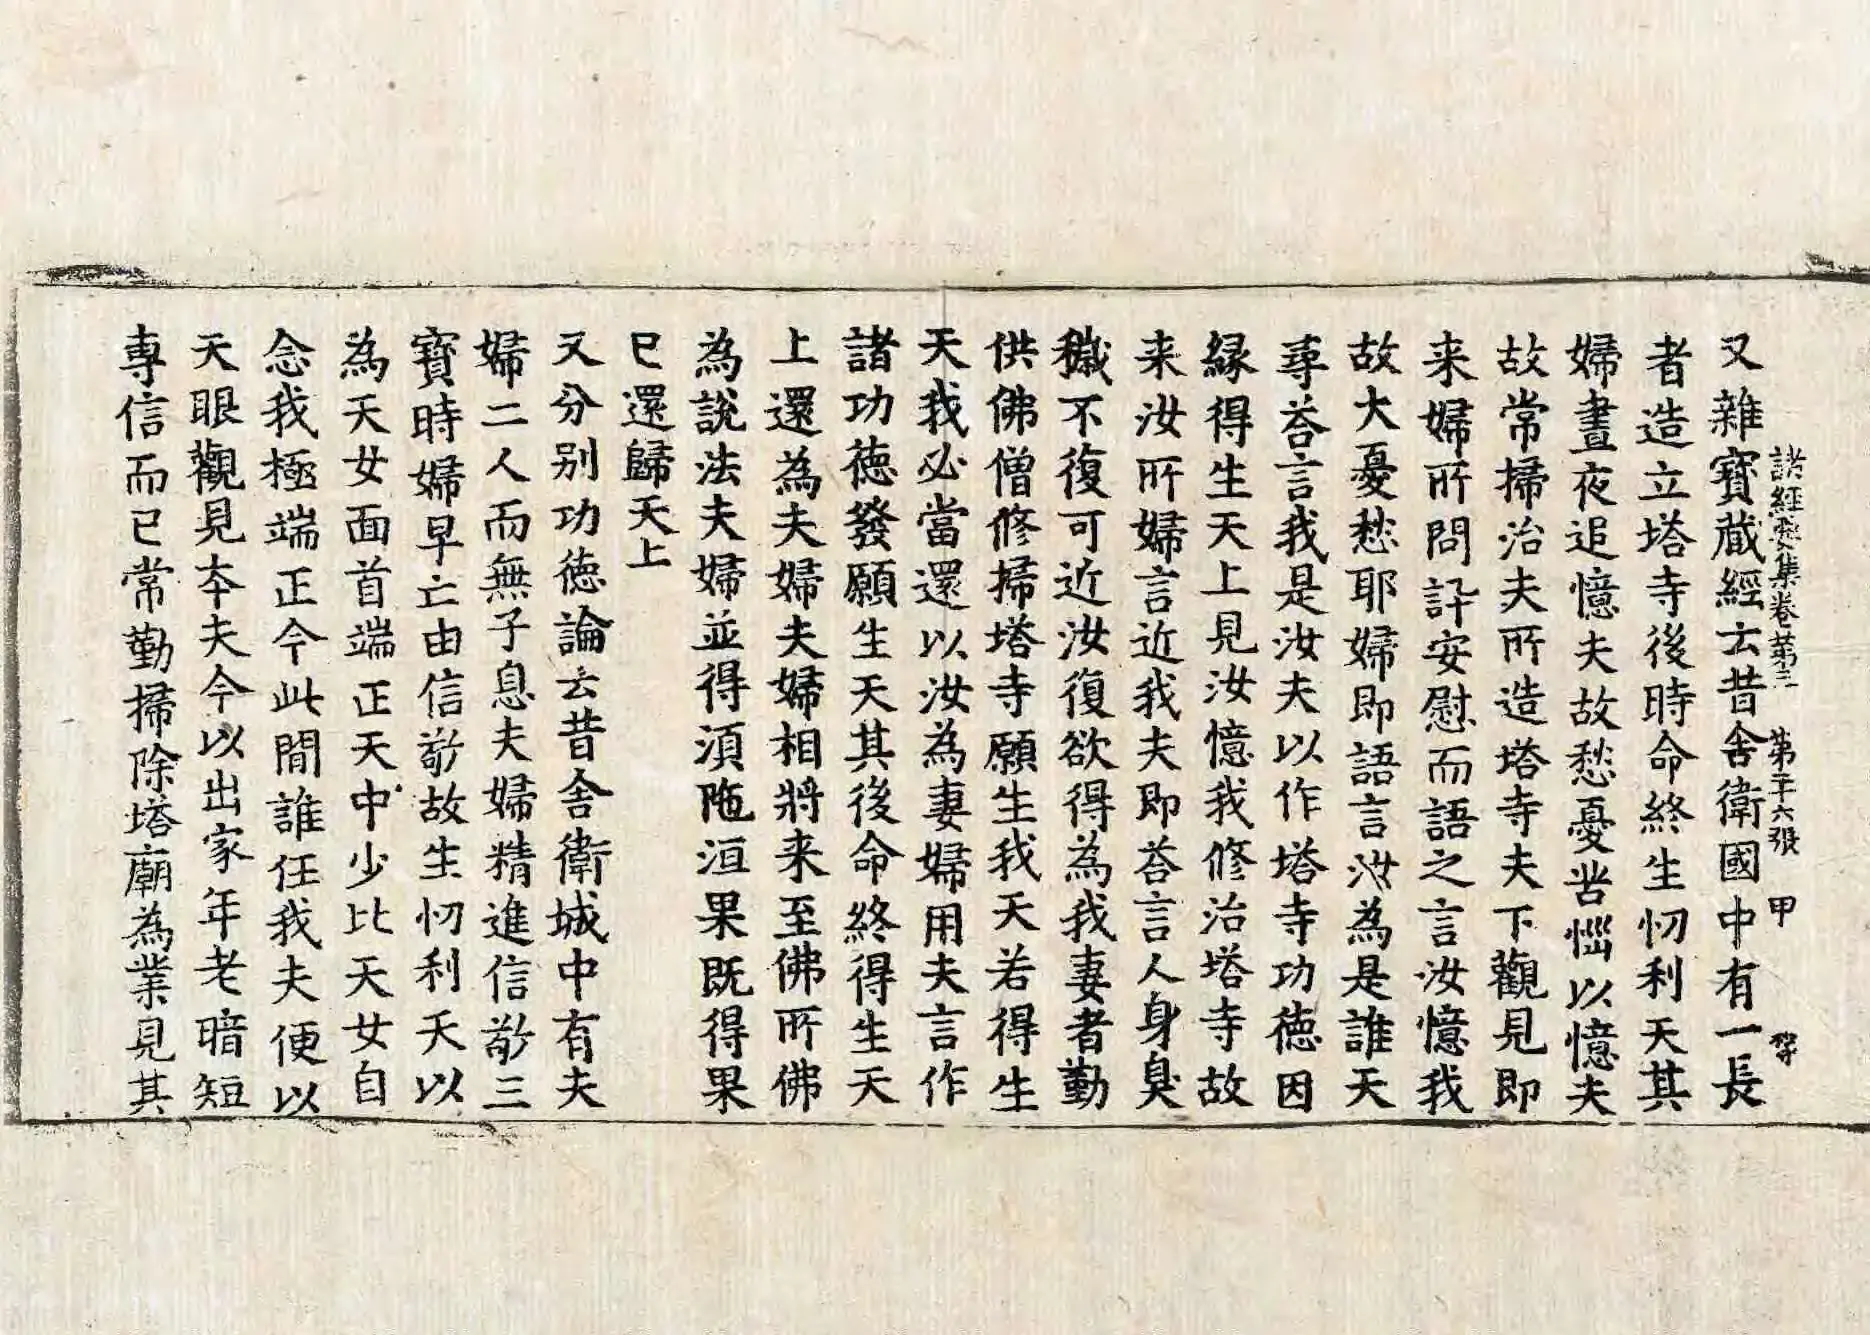 又雜寶藏經云昔舍衛國中有一長
諸經要集卷第三 第二十六張 甲
者造立塔寺後時命終生忉利天其
婦晝夜追憶夫故愁憂苦惱以憶夫
故常掃治夫所造塔寺夫下觀見即
来婦所問訊安慰而語之言汝憶我
故大憂愁耶婦即語言汝為是誰天
尋荅言我是汝夫以作塔寺功德因
緣得生天上見汝憶我修治塔寺故
来汝所婦言近我夫即荅言人身臭
穢不復可近汝復欲得為我妻者勤
供佛僧修掃塔寺願生我天若得生
天我必當還以汝為妻婦用夫言作
諸功德發願生天其後命終得生天
上還為夫婦夫婦相將来至佛所佛
為說法夫婦並得湏陁洹果既得果
已還歸天上
又分別功德論云昔舍衛城中有夫
婦二人而無子息夫婦精進信敬三
寶時婦早亡由信敬故生忉利天以
為天女面首端正天中少比天女自
念我極端正今此間誰任我夫便以
天眼觀見本夫今以出家年老暗短
專信而已常勤掃除塔廟為業見其